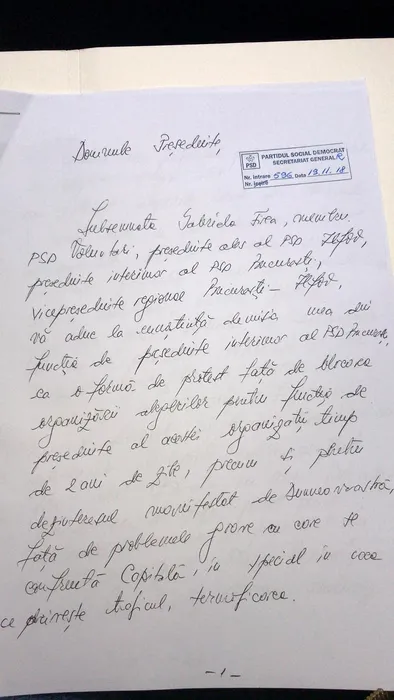 Domnule Președinte,
PSD
PARTIDUL SOCIAL DEMOCRAT
SECRETARIAT GENERAL
Nr. intrare 596 Data 19.11.18
Nr. ieșire
Subsemnata Gabriela Firea, membru
PSD Voluntari, președinte ales al PSD Ilfov,
președinte interimar al PSD București,
vicepreședinte regional București - Ilfov,
vă aduc la cunoștință demisia mea din
funcția de președinte interimar al PSD București
ca o formă de protest față de blocarea
organizării alegerilor pentru funcția de
președinte al acestei organizații timp
de 2 ani de zile, precum și pentru
dezinteresul manifestat de dumneavoastră,
față de problemele grave cu care se
confruntă Capitala, în special în ceea
ce privește traficul, termoficarea.
-1-